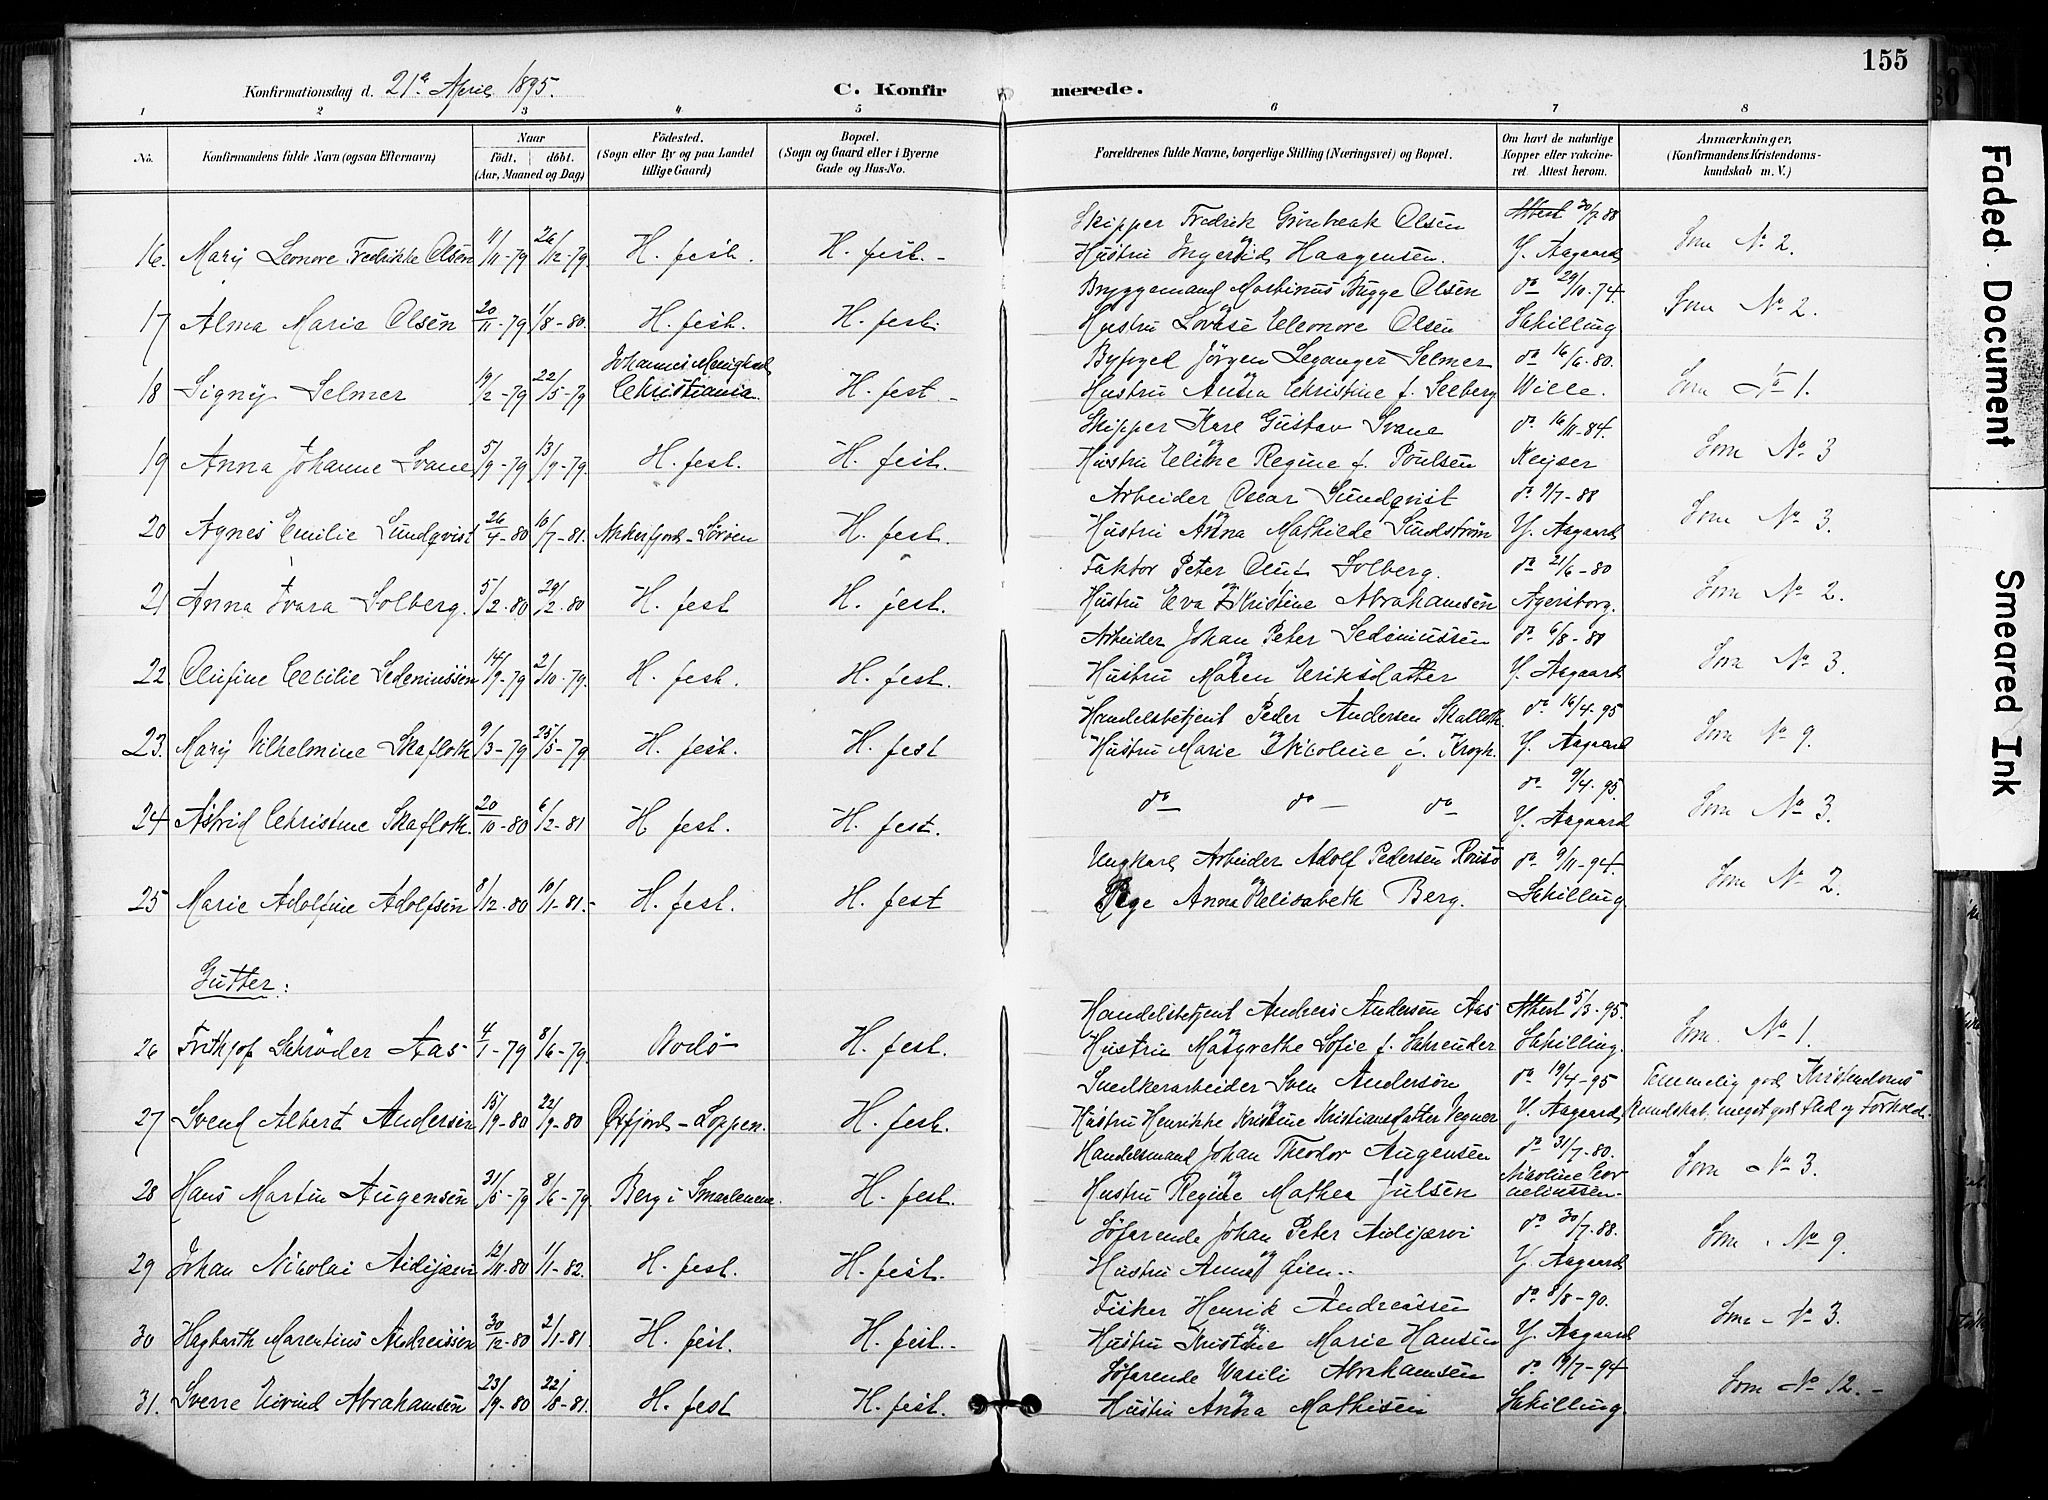 155
Konfirmationsdag d. 21de April 1895.
C. Konfirmerede.
1 2 3 4 5 6 7 8
No. Konfirmandens fulde Navn (ogsaa Efternavn) Naar født. døbt. (Aar, Maaned og Dag) Fødested. (Sogn eller By og paa Landet tillige Gaard) Bopæl. (Sogn og Gaard eller i Byerne Gade og Hus-No. Forældrenes fulde Navne, borgerlige Stilling (Næringsvei) og Bopæl. Om havt de naturlige Kopper eller vakcineret. Attest herom. Anmærkninger, (Konfirmandens Kristendomskundskab m. V.)
Skipper Fredrik Grønbeck Olsen Attest 30/7 88
16. Mary Leonore Fredrikke Olsen 11/11-79 26/12-79. H. fest. H. fest. Hustru Ingerid Haagensen. Y. Aagaard Som No 2.
Bryggemand Martinus Bugge Olsen do 29/10-74.
17 Alma Marie Olsen 20/11-79 1/8-80. H. fest. H. fest. Hustru Lovise Eleonore Olsen Schilling Som No 2.
Byfoged Jörgen Leganger Selmer do 16/6-80.
18 Signy Selmer 9/2-79 22/5-79 Christiania H. fest. Hustru Anna Christine f. Seeberg Wille. Som No 1.
Skipper Karl Gustav Svane do 16/11-84.
19 Anna Johanne Svane 5/9-79 13/9-79. H. fest. H. fest. Hustru Eline Regine f. Poulsen Keyser Som No 3
Arbeider Oscar Sundqvist do 9/7-88
20 Agnes Emilie Sundqvist 26/4-80 10/7-81. Akkerfjord-Sörøen H. fest. Hustru Anna Mathilde Sundström Y. Aagaard Som No 3.
Faktor Peter Oluf Solberg. do 21/6-80
21 Anna Ivara Solberg. 5/2-80 29/2-80 H. fest H. fest. Hustru Eva Kristine Abrahamsen Agersborg. Som No 2.
Arbeider Johan Peter Sedeniussen do 6/8-80
22. Olufine Cecilie Sedeniussen 14/9-79 2/10-79. H. fest. H. fest. Hustru Maren Eriksdatter Y. Aagaard Som No 3.
Handelsbetjent Peder Andersen Skafloth. do 16/4-95
23. Mary Vilhelmine Skafloth 9/3-79 25/5-79 H. fest. H. fest Hustru Marie Nicoline f. Krogh. Y. Aagaard Som No 9.
do 9/4-95.
24 Astrid Christine Skafloth. 20/10-80 6/2-81 H fest. H. fest. do do do Y. Aagaard Som No 3.
Ungkarl Arbeider Adolf Pedersen do 9/11-94.
25 Marie Adolfine Adolfsen 8/12-80 10/1-81. H. fest. H. fest Pige Anna Elisabeth Berg. Schilling. Som No 2.
Gutter:
Handelsbetjent Andreas Andersen Aas Attest 5/3-95.
26 Frithjof Schrøder Aas 4/1-79 8/6-79. Bodø H. fest. Hustru Margrethe Sofie f. Schreuder Schilling. Som No 1.
Snedkerarbeider Sven Andersen do 19/4-95 Temmelig god Kristendoms
27 Svend Albert Andersen 15/9-80 22/9-80 Øxfjord-Loppen. H. fest. Hustru Henrikke Kristine Kristiansdatter Vegner Y. Aagaard Kundskab, meget god Flid og Forhold.
Handelsmand Johan Theodor Augensen do 31/7-80.
28 Hans Martin Augensen 31/5-79 8/6-79. Berg i Smaalenene. H. fest. Hustru Regine Mathea Julsen Nicoline Cornelius­sen. Som No 3.
Söfarende Johan Peter Aidijærvi do 30/7-88.
29 Johan Nikolai Aidijærvi 12/11-80 1/1-82. H. fest. H. fest. Hustru Anna Y. Aagaard Som No 9.
Fisker Henrik Andreassen do 8/8-90.
30 Hagbarth Marentius Andreassen 30/12-80 2/1-81. H. fest. H. fest. Hustru Kristine Marie Hansen Y. Aagaard Som No 3.
Söfarende Vasili Abrahamsen do 19/7-94
31. Sverre Eivind Abrahamsen 23/9-80 22/8-81. H. fest H. fest. Hustru Anna Mathisen Schilling. Som No 12.
Faded Document
Smeared Ink